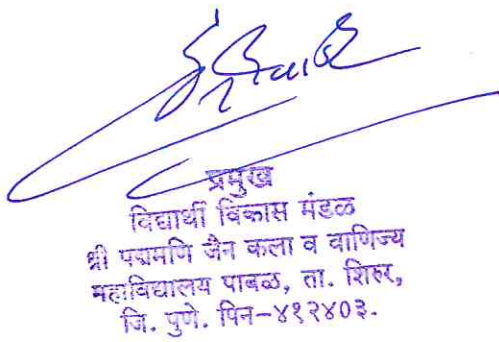 प्रमुख
विद्यार्थी विकास मंडळ
श्री पद्ममणि जैन कला व वाणिज्य
महाविद्यालय पाबळ, ता. शिरुर,
जि. पुणे. पिन-४१२४०३.